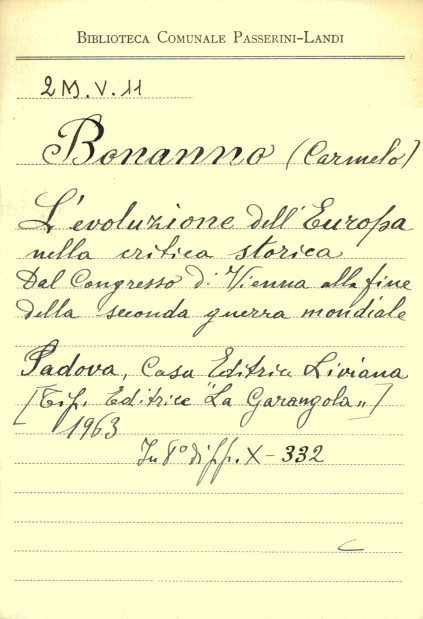 BIBLIOTECA COMUNALE PASSERINI-LANDI
2 M. V. 11
Bonanno (Carmelo)
L'evoluzione dell'Europa
nella critica storica
Dal Congresso di Vienna alla fine
della seconda guerra mondiale
Padova, Casa Editrice Liviana
[Tip. Editrice "La Garangola"]
1963
In 8° di pp. X-332